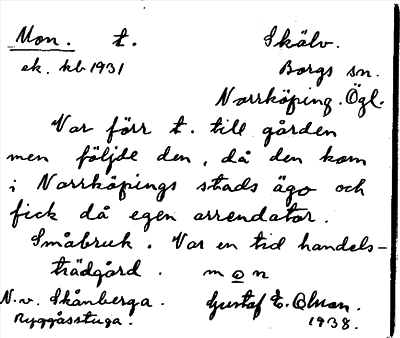 Mon. t. Skälv.
ek. kb 1931 Borgs sn.
Norrköping. Ögl.
Var förr t. till gården
men följde den, då den kom
i Norrköpings stads ägo och
fick då egen arrendator.
Småbruk. Var en tid handels-
trädgård. mon
N.v. Skånberga. Gustaf E. Olson.
Ryggåsstuga. 1938.